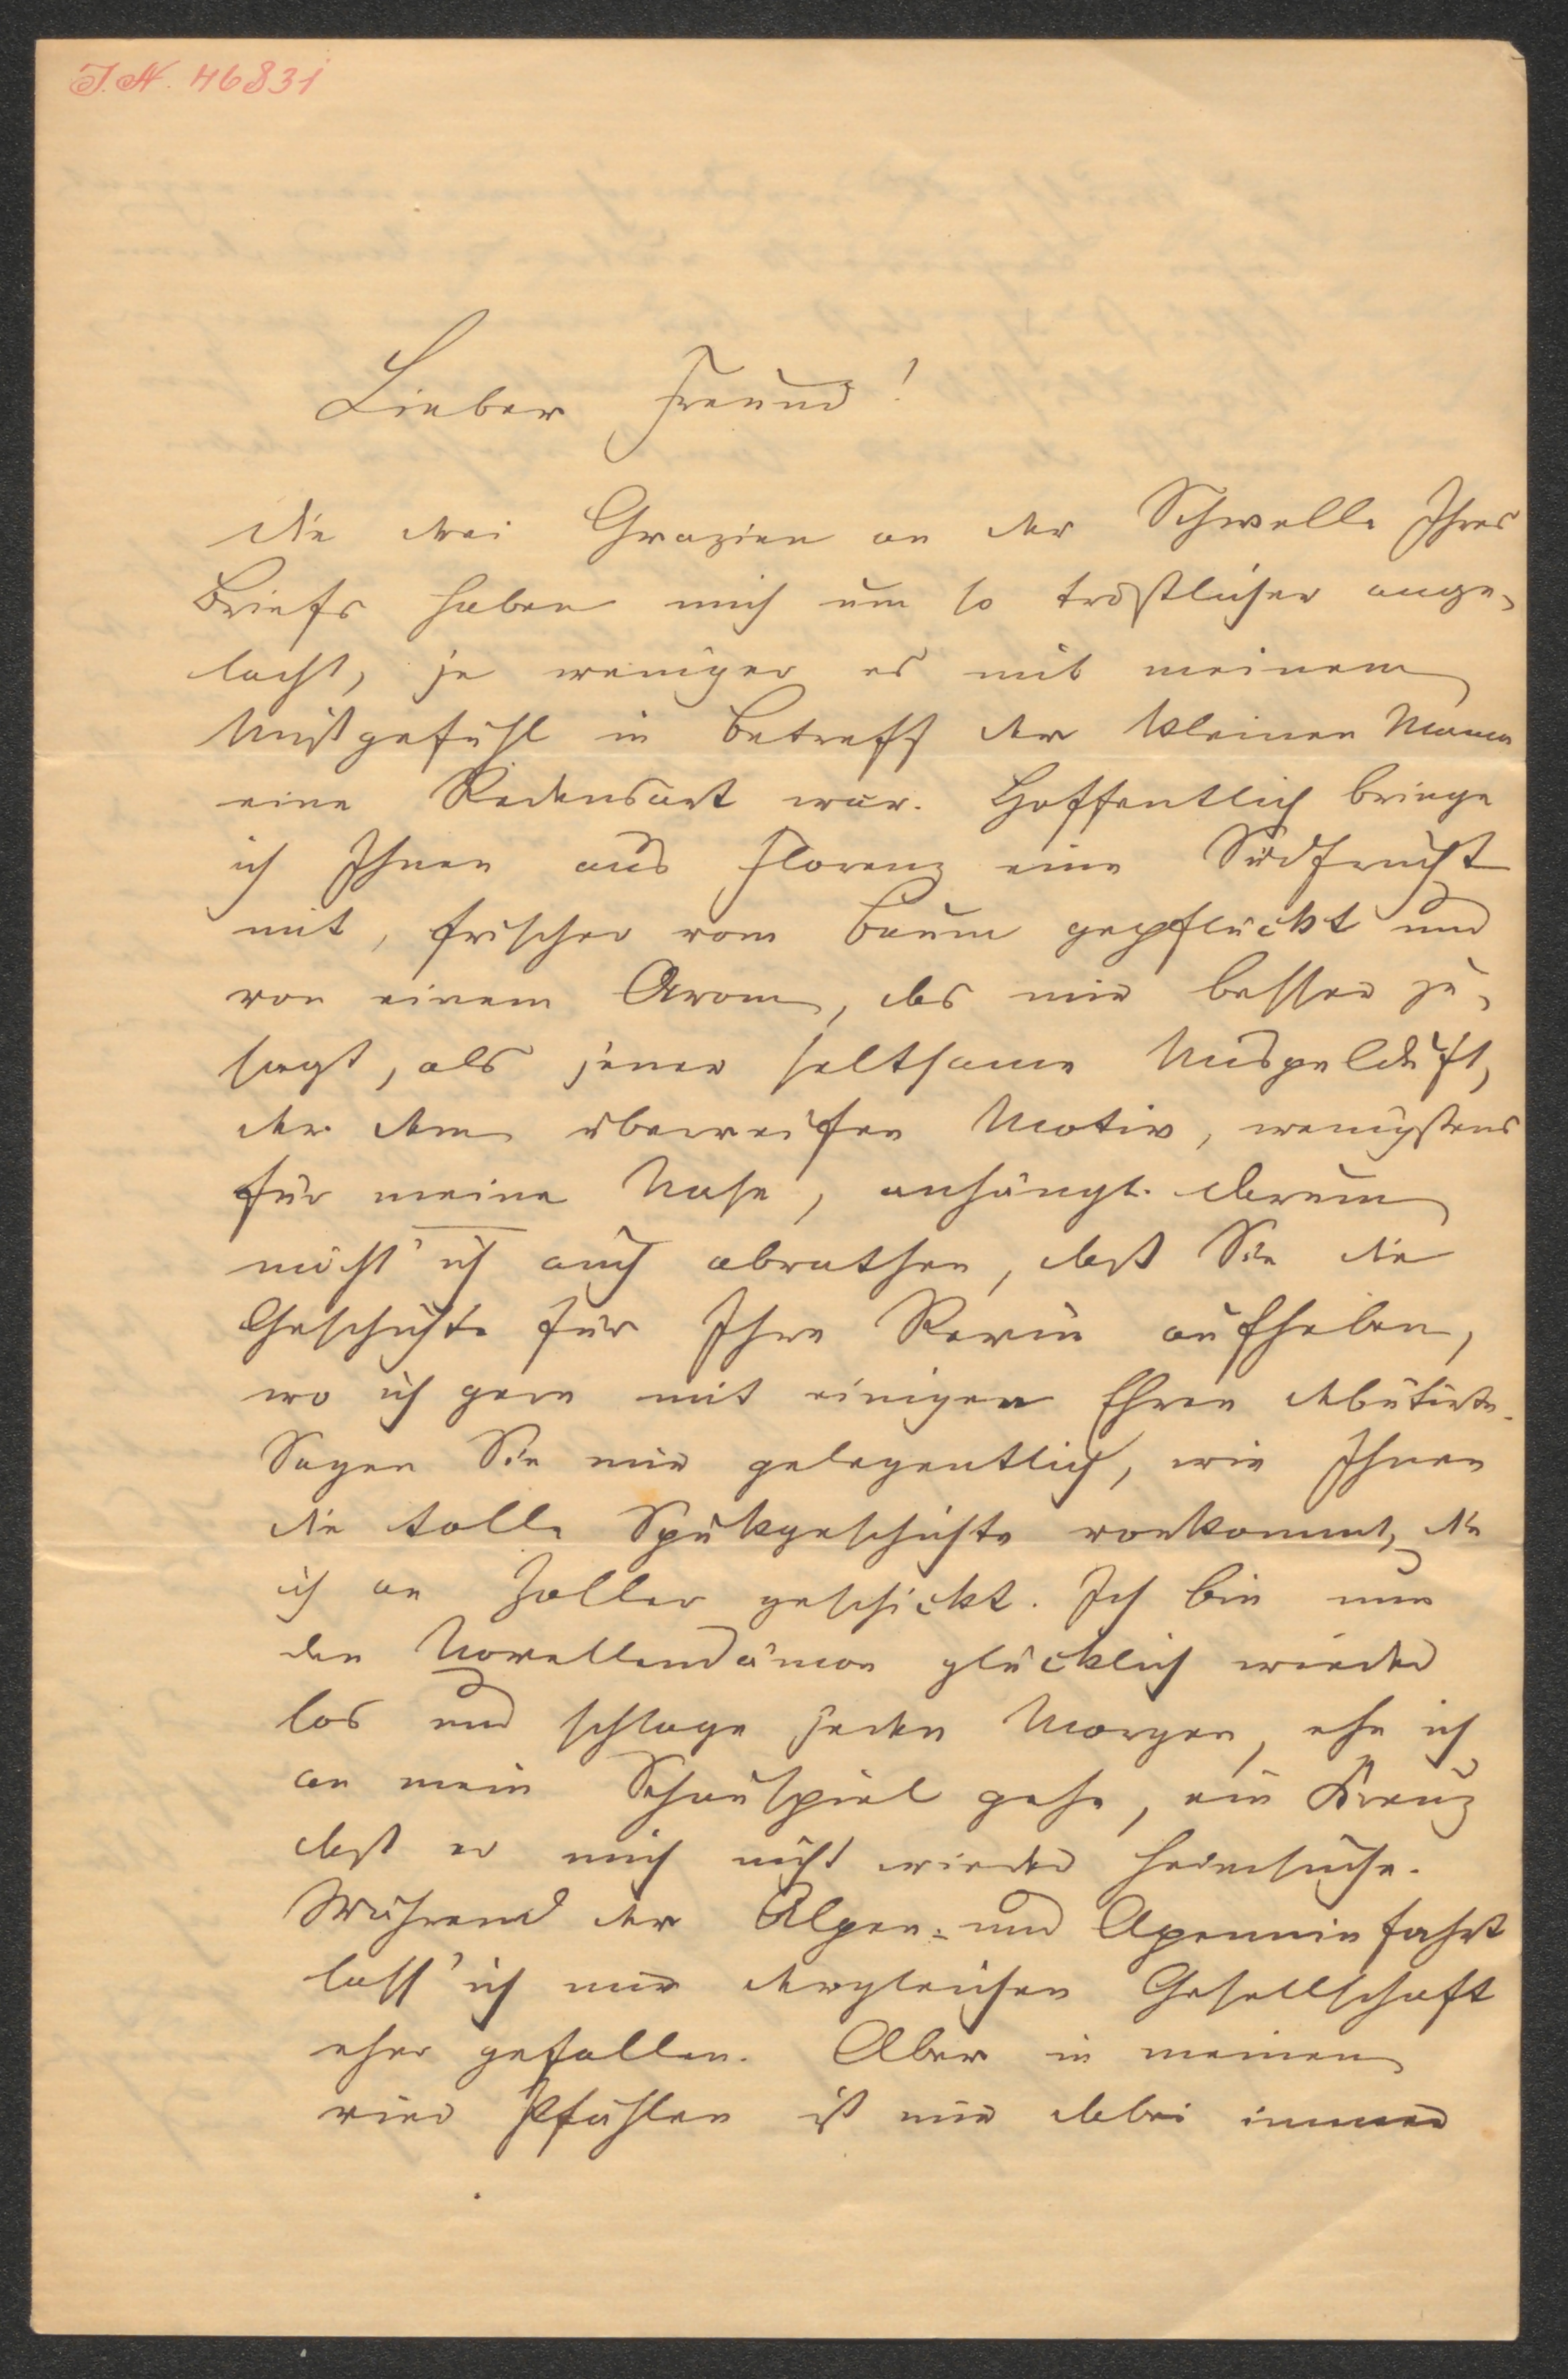 J.N. 46831
Lieber Freund!
die drei Grazien an der Schwelle Ihres
Briefs haben mich um so tröstlicher ange-
lacht, je weniger es mit meinem
Mißgefühl in Betreff der kleinen Mama
eine Redensart war. Hoffentlich bringe
ich Ihnen aus Florenz eine Südfrucht
mit, frischer vom Baum gepflückt und
von einem Arom, das mir besser zu-
sagt, als jener seltsame Mispelduft,
der dem überreifen Motiv, wenigstens
für meine Nase, anhängt. Darum
möcht' ich auch abrathen, daß Sie die
Geschichte für Ihre Revue aufheben,
wo ich gern mit einigen Ehren debütirte.
Sagen Sie mir gelegentlich, wie Ihnen
die tolle Spukgeschichte vorkommt, die
ich an Zoller geschickt. Ich bin nun
den Novellendämon glücklich wieder
los und schlage jeden Morgen, ehe ich
an mein Schauspiel gehe, ein Kreuz
daß er mich nicht wieder heimsuche.
Während der Alpen- und Apenninfahrt
lass' ich mir dergleichen Gesellschaft
eher gefallen. Aber in meinen
vier Pfählen ist mir dabei immer